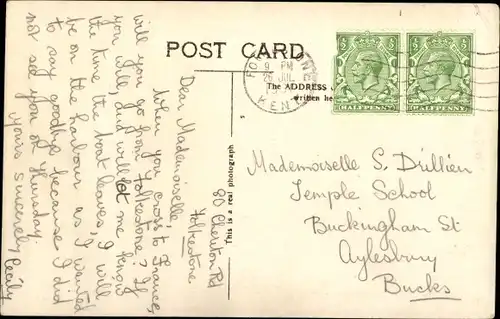 POST CARD
80 Cheriton Rd
Folkestone
Dear Mademoiselle,
When you cross to France,
will you go from Folkestone? If
you will, and will let me know
the time the boat leaves, I will
be on the harbour as I wanted
to say goodbye because I did
not see you on Thursday.
Yours sincerely,
Cecily
This is a real photograph
9 PM
26 JUL
KENT
The ADDRESS
written he
HALFPENNY
HALFPENNY
Mademoiselle S. Drillien
Temple School
Buckingham St
Aylesbury
Bucks